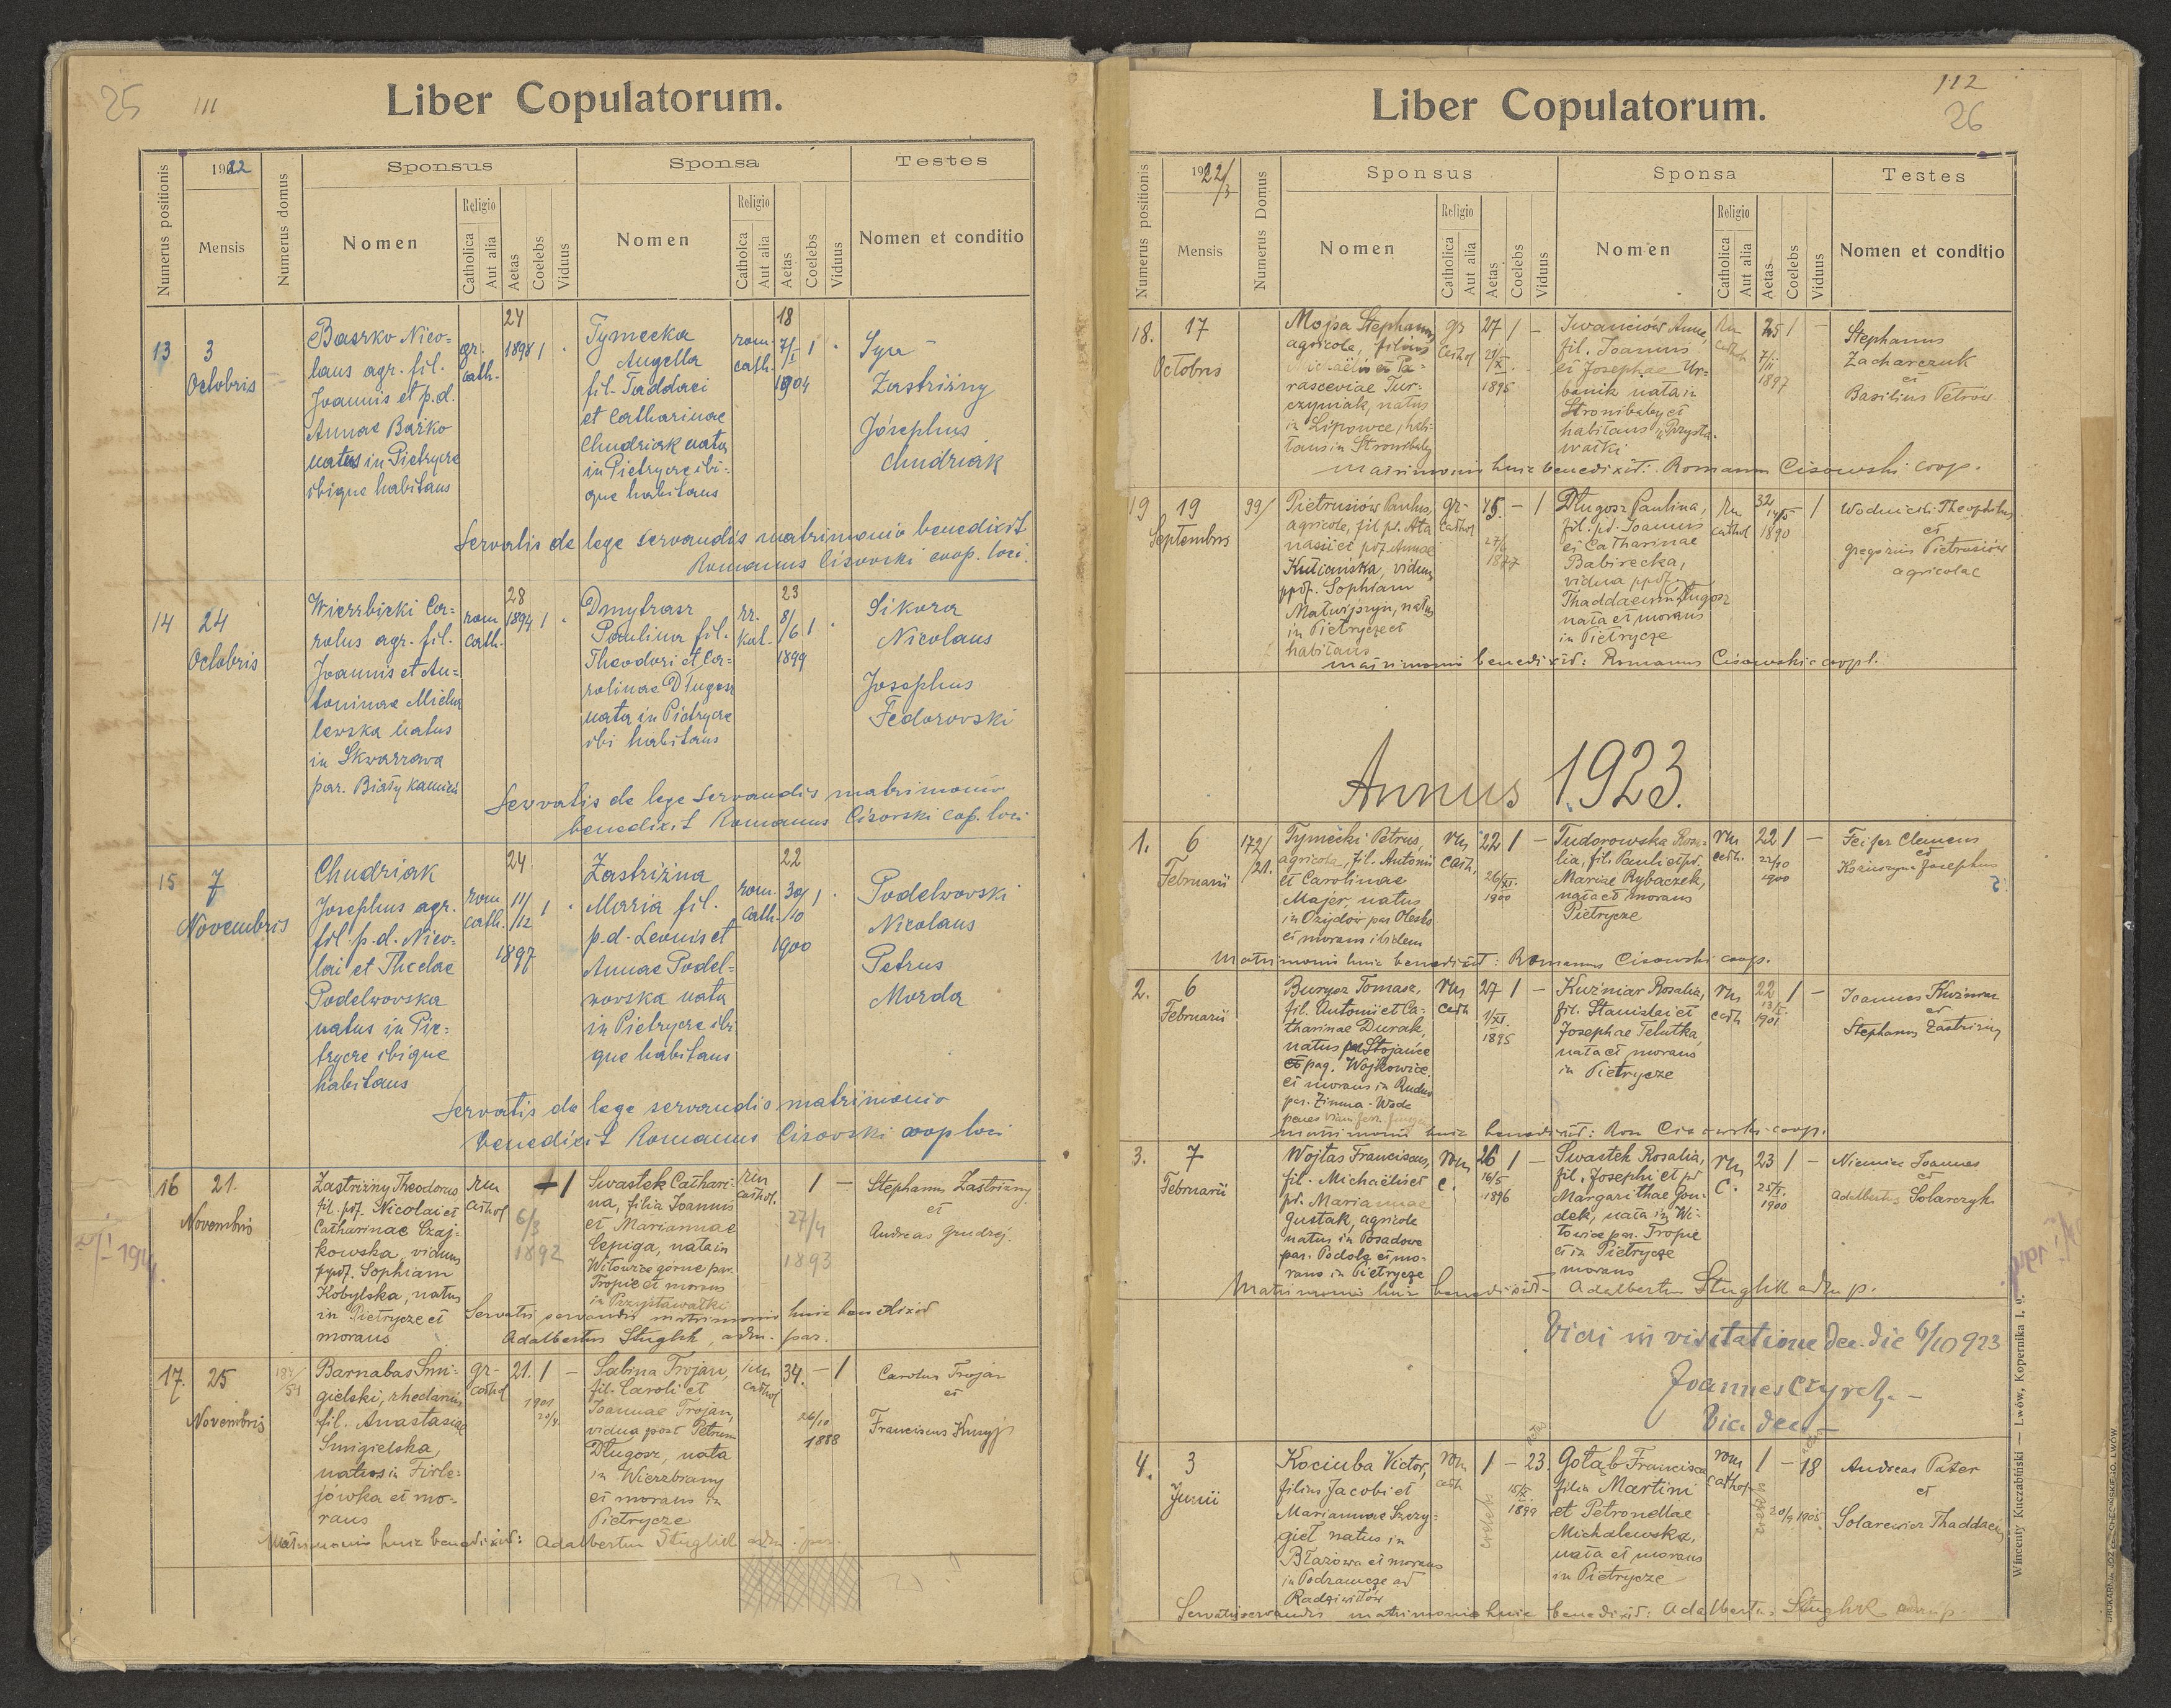 25
111
Liber Copulatorum.
Numerus positionis
1922
Mensis
Numerus domus
Sponsus
Nomen
Religio
Catholica
Aut alia
Aetas
Coelebs
Viduus
Sponsa
Nomen
Religio
Catholca
Aut alia
Aetas
Coelebs
Viduus
Testes
Nomen et conditio
13
3
Octobris
Baszko Nico=
laus agr. fil.
Joannis et p.d.
Annae Bazko
natus in Pietrycze
ibique habitans
gr.
cath.
24
1898
1
Tymecka
Angella
fil. Taddaei
et Catharinae
Chudziak nata
in Pietrycze ibi=
que habitans
rom.
cath.
18
7/I
1904
1
Syn
Zastrizny
Józephus
Chudziak
Servatis de lege servandis matrimonio benedixit
Romanus Cisovski coop. loci.
14
24
Octobris
Wierzbicki Ca=
rolus agr. fil.
Joannis et An=
toninae Micha
levska natus
in Skwarzawa
par. Biały kamień
rom
cath.
28
1894
1
Dmytrasz
Paulina fil.
Theodori et Ca=
rolinae Długosz
nata in Pietrycze
ibi habitans
rz.
kat.
23
8/6
1899
1
Sikora
Nicolaus
Josephus
Fedorovski
Servatis de lege servandis matrimonio
benedixit Romanus Cisovski cop. loci
15
7
Novembris
Chudziak
Josephus agr.
fil. p.d. Nico=
lai et Theclae
Podelwovska
natus in Pie=
trycze ibique
habitans
rom
cath.
24
11/12
1897
1
Zastrizna
Maria fil.
p.d. Leonis et
Annae Podel=
wovska nata
in Pietrycze ibi
que habitans
rom.
cath.
22
30/10
1900
1
Podelwovski
Nicolaus
Petrus
Morda
Servatis de lege servandis matrimonio
benedixit Romanus Cisovski coop loci
16
21.
Novembris
Zastrizny Theodorus
fil. pdf. Nicolai et
Catharinae Czaj=
kowska, viduus
ppdf. Sophiam
Kobylska, natus
in Pietrycze et
morans
rm
cathol
6/3
1892
1
Swastek Cathari=
na, filia Joannis
et Mariannae
Cepiga, nata in
Witowice górne par.
Tropie et morans
in Przystawałki
rm
cathol.
27/4
1893
1 —
Stephanus Zastrizny
et
Andreas Grudzej.
Servatis servandis matrimonio huic benedixit
Adalbertus Stuglik, adm. par.
17.
25
Novembris
187/54
Barnabas Smi=
gielski, rhedarius
fil. Anastasiae
Smigielska,
natus in Firle=
jówka et mo=
rans
gr-
cathol
21.
1 —
1901
Sabina Trojan,
fil. Caroli et
Joannae Trojan,
vidua post Petrum
Długosz, nata
in Wierzbiany
et morans in
Pietrycze
rm
cathol
34.
— 1
26/10
1888
Carolus Trojan
et
Franciscus
Matrimonio huic benedixit: Adalbertus Stuglik adm. par.
112
26
Liber Copulatorum.
Numerus positionis
1922/3
Mensis
Numerus Domus
Sponsus
Nomen
Religio
Catholica
Aut alia
Aetas
Coelebs
Viduus
Sponsa
Nomen
Religio
Catholica
Aut alia
Aetas
Coelebs
Viduus
Testes
Nomen et conditio
18.
17
Octobris
Mojsa Stephanus,
agricola, filius
Michaëlis et Pa=
rasceviae Tur=
czyniak, natus
in Lipowce, habi=
tans in Stronibaby
gr
cathol
27
1 —
21/X.
1895
Iwanciów Anna,
fil. Joannis
et Josephae Ur=
banik nata in
Stronibaby et
habitans in Przysta=
wałki
Rm
cathol
25
1 —
7/II
1897
Stephanus
Zacharczuk
et
Basilius Petrów
Matrimonio huic benedixit: Romanus Cisowski coop.
19
19
Septembris
99/
Pietrusiów Paulus,
agricola, fil pd. Ata
nasii et pdf Annae
Kulczańska, viduus
ppdf. Sophiam
Matwijszyn, natus
in Pietrycze et
habitans
gr-
cathol
45.
— 1
27/6
1877
Długosz Paulina,
fil. pd. Joannis
et Catharinae
Babirecka,
vidua ppdf.
Thaddaeum Długosz
nata et morans
in Pietrycze
Rm
cathol
32
14/5
1890
1
Wodnicki Theophilus
et
Gregorius Pietrusiów
agricolae
matrimonio benedixit: Romanus Cisowski coopl.
Annus 1923.
1.
6
Februarii
172/
/21.
Tymecki Petrus,
agricola, fil. Antonii
et Carolinae
Majer, natus
in Ożydów par Olesko
et morans ibidem
rm
cath.
22
1 —
26/XI.
1900
Tudorowska Rosa=
lia, fil. Pauli et pd.
Mariae Rybaczek,
nata et morans
Pietrycze
rm
cath.
22
1 —
22/10
1900
Feifer Clemens
et
Josephus
Matrimonio huic benedixit: Romanus Cisowski coop.
2.
6
Februarii
Burysz Tomasz,
fil. Antonii et Ca=
tharinae Durak,
natus Stojańce
et pag. Wojkowice
et morans in Rudno
par. Zimna-Woda
rm
cath
27
1 —
1/XI.
1895
Kuźniar Rosalia,
fil. Stanislai et
Josephae Telutka,
nata et morans
in Pietrycze
rm
cath
22
1 —
1901
Joannes Kuźniar
et
Stephanus Zastrizny
matrimonio huic benedixit: Rom Cisowski coop.
3.
7
Februarii
Wojtas Franciscus,
fil. Michaëlis et
pd. Mariannae
Gustak, agricola
natus in Posadowa
par. Podole et mo=
rans in Pietrycze
rom
c.
26
1 —
16/5
1896
Swastek Rosalia,
fil. Josephi et pd
Margarithae Gon=
dek, nata in Wi=
towice par. Tropie
et in Pietrycze
morans
rm
c.
23
1 —
25/X.
1900
Niemiec Joannes
et
Adalbertus Solarczyk
Matrimonio huic benedixit — Adalbertus Stuglik adm p.
Vidi in visitatione dec. die 6/10 923
Joannes Czyrek. —
Vic. dec. —
4.
3
Junii
Kociuba Victor,
filius Jacobi et
Mariannae Szczy=
gieł natus in
Błażowa et morans
in Podzamcze ad
Radziwiłłów
rom
cath
1 —
23.
15/X
1899
coelebs
Gołąb Francisca
filia Martini
et Petronellae
Michalewska,
nata et morans
in Pietrycze
rom
cathol
1 —
18
20/9 1905.
coelebs
Andreas Pater
et
Solarewicz Thaddaeus
Servatis servandis matrimonio huic benedixit: Adalbertus Stuglik adm p
Wincenty Kuczabiński — Lwów, Kopernika l. 9.